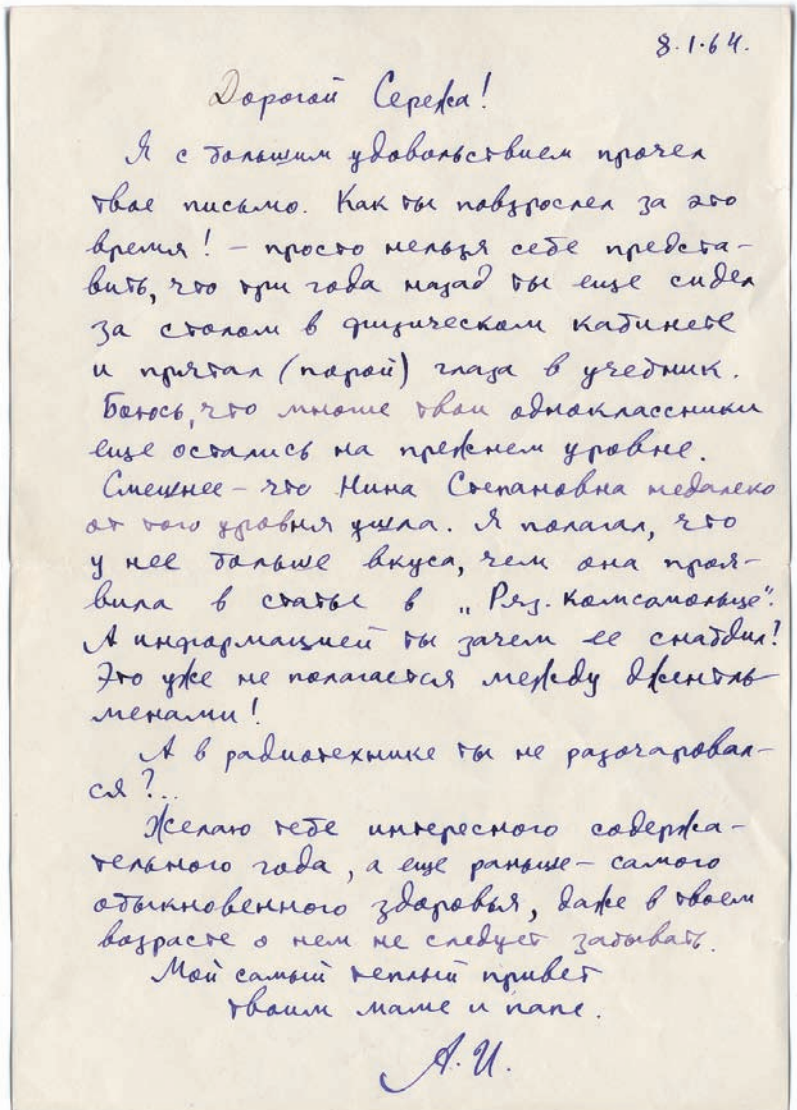 8.1.64.
Дорогой Сережа!
Я с большим удовольствием прочел
твое письмо. Как ты повзрослел за это
время! – просто нельзя себе предста-
вить, что три года назад ты еще сидел
за столом в физическом кабинете
и прятал (порой) глаза в учебник.
Боюсь, что многие твои одноклассники
еще остались на прежнем уровне.
Смешнее – что Нина Степановна недалеко
от того уровня ушла. Я полагал, что
у нее больше вкуса, чем она проя-
вила в статье в „Ряз. комсомольце".
А информацией ты зачем ее снабдил?
Это уже не полагается между джентль-
менами!
А в радиотехнике ты не разочаровал-
ся?..
Желаю тебе интересного содержа-
тельного года, а еще раньше – самого
обыкновенного здоровья, даже в твоем
возрасте о нем не следует забывать.
Мой самый теплый привет
твоим маме и папе.
А.И.